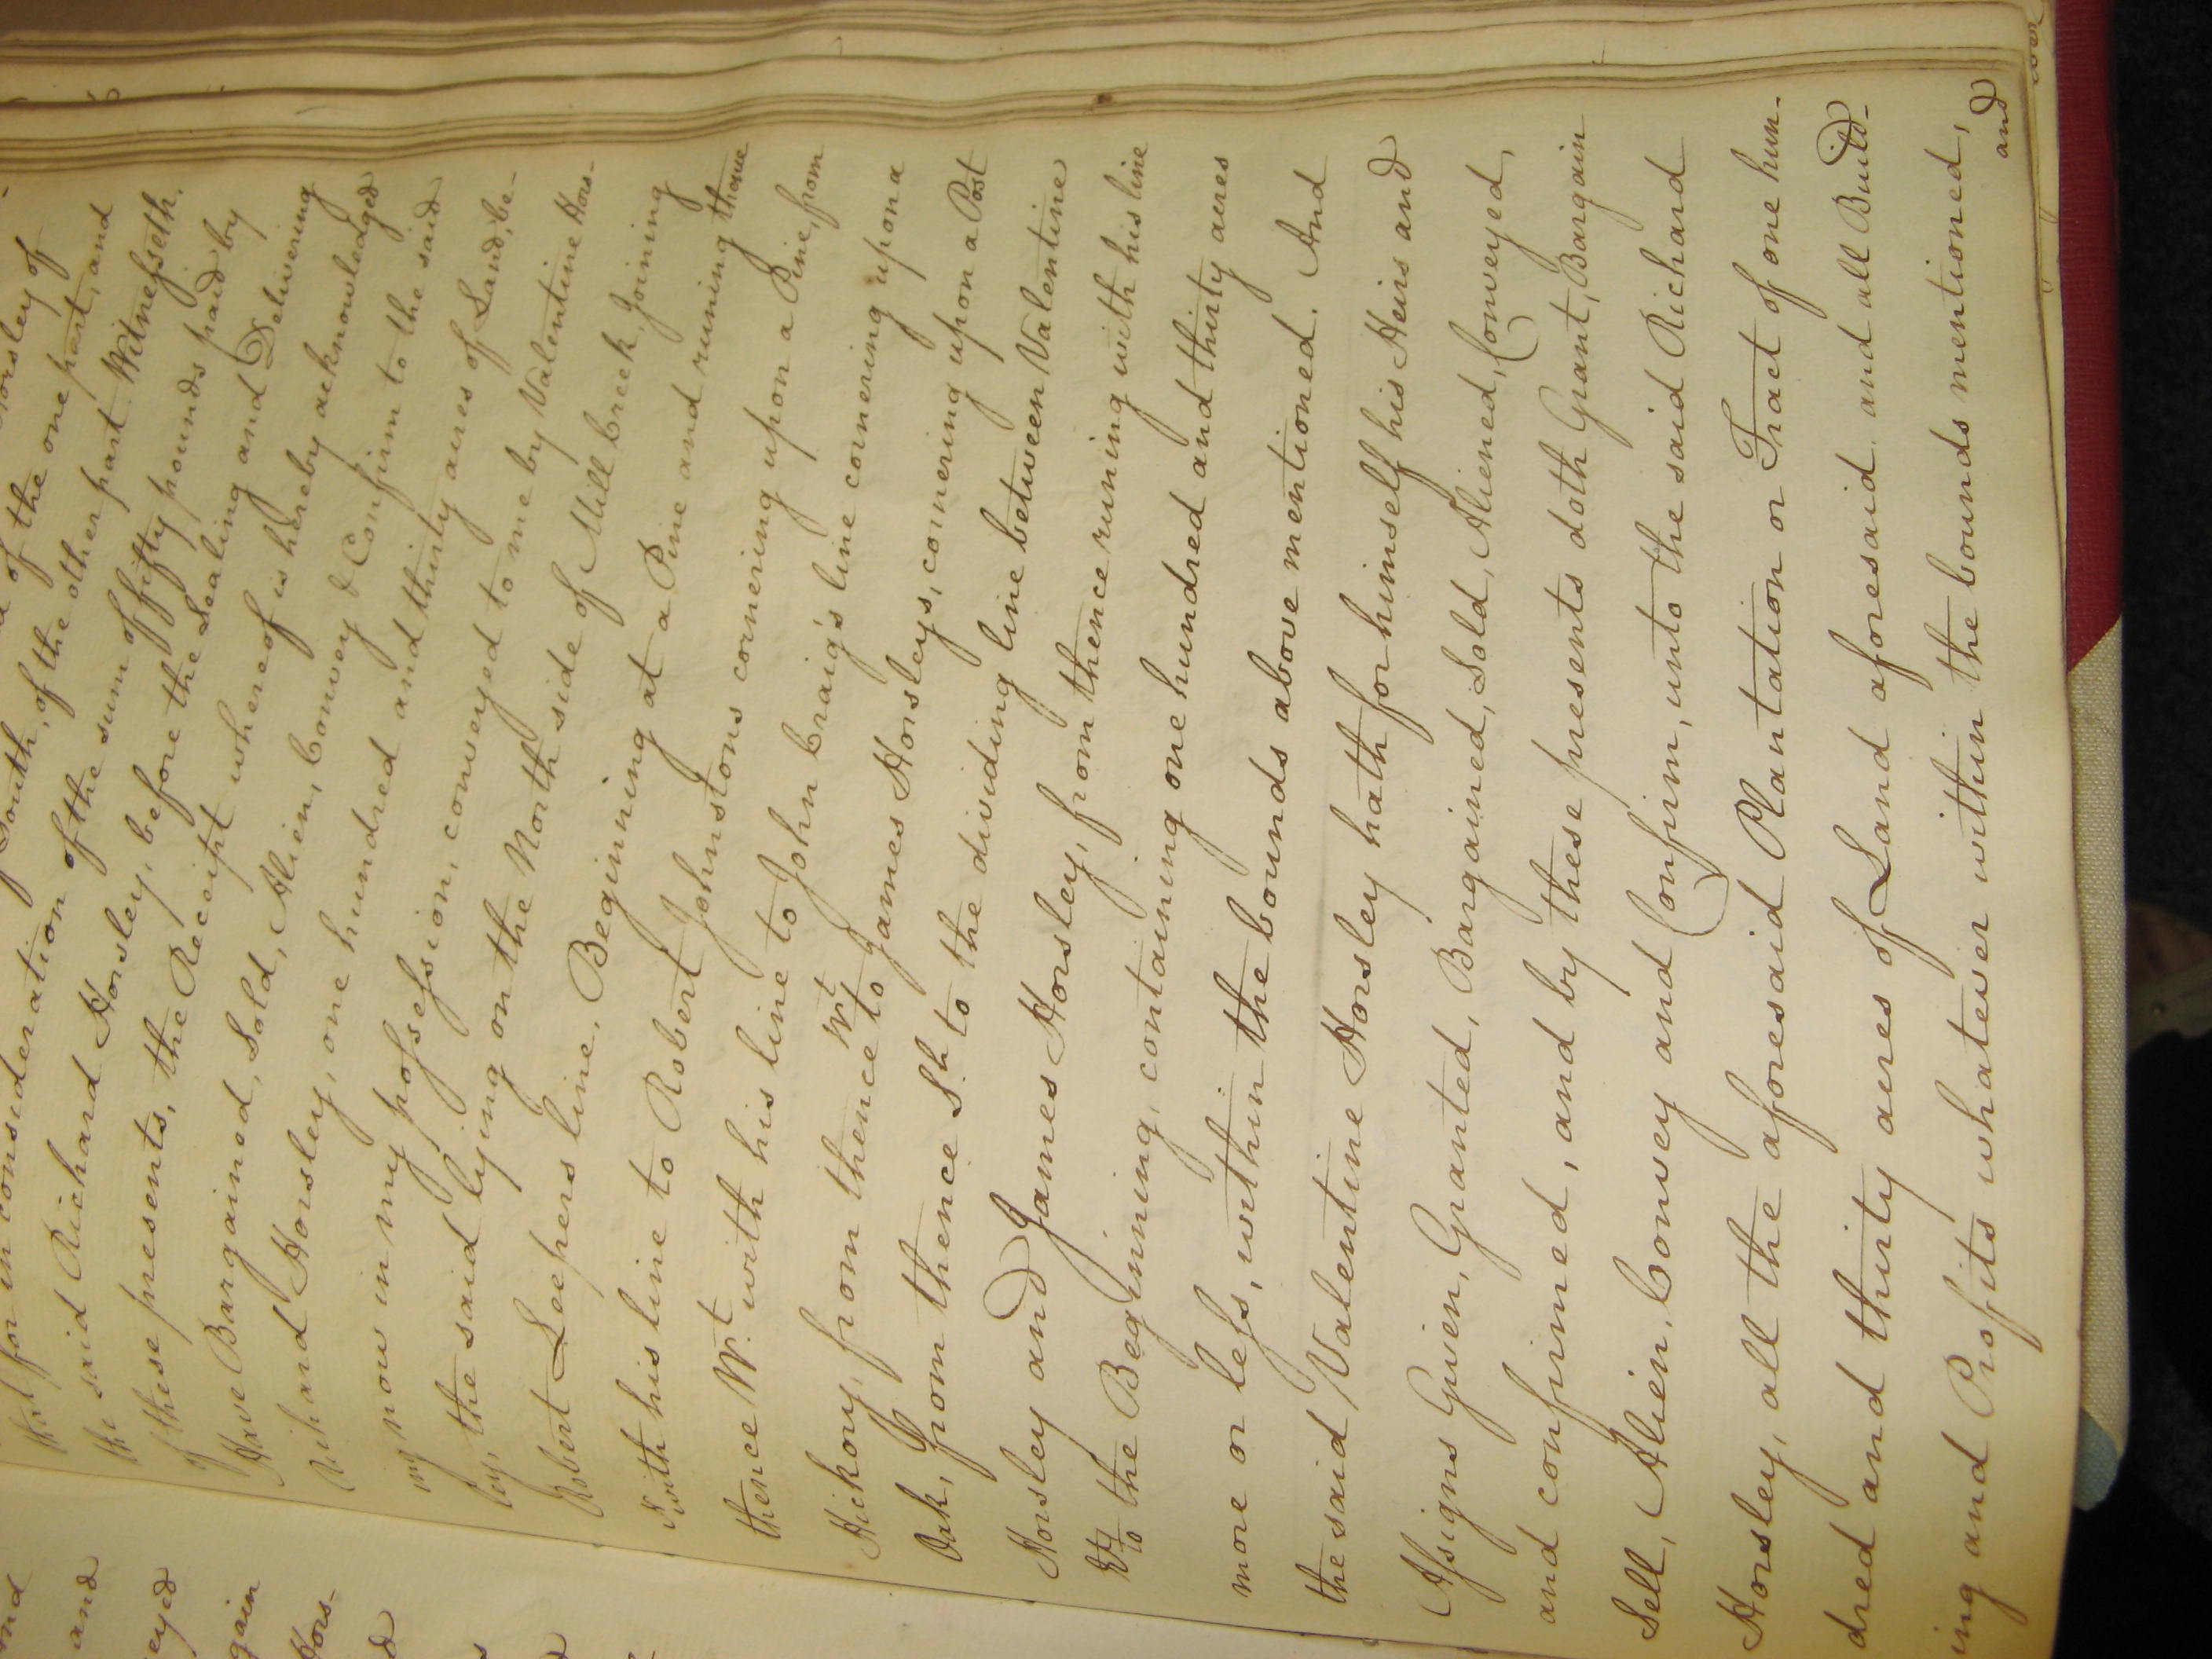 Horsley of
of the one part, and
South, of the other part Witnesseth,
that for in consideration of the sum of fifty pounds paid by
the said Richard Horsley, before the Sealing and Delivering
of these presents, the Receipt whereof is hereby acknowledged
Have Bargained, Sold, Alien, Convey & Confirm to the said
Richard Horsley, one hundred and thirty acres of Land, be-
ing now in my possession, conveyed to me by Valentine Hors-
ley, the said lying on the North side of Mill Creek, Joining
Robert Leepers line, Begining at a Pine and runing thence
with his line to Robert Johnstons cornering upon a Pine, from
thence Wt. with his line to John Craig's line cornering upon a
Hickory, from thence Wt to James Horsleys, cornering upon a Post
Oak, from thence Sh. to the dividing line between Valentine
Horsley and James Horsley, from thence runing with his line
Et to the Begining, containing one hundred and thirty acres
more or less, within the bounds above mentioned. And
the said Valentine Horsley hath for himself his Heirs and
Assigns Given, Granted, Bargained, Sold, Aliened, Conveyed,
and confirmed, and by these presents doth Grant, Bargain
Sell, Alien, Convey and Confirm, unto the said Richard
Horsley, all the aforesaid Plantation or Tract of one hun-
dred and thirty acres of Land aforesaid and all Build-
ing and Profits whatever within the bounds mentioned,
and
and
eyed
gain
Hors-